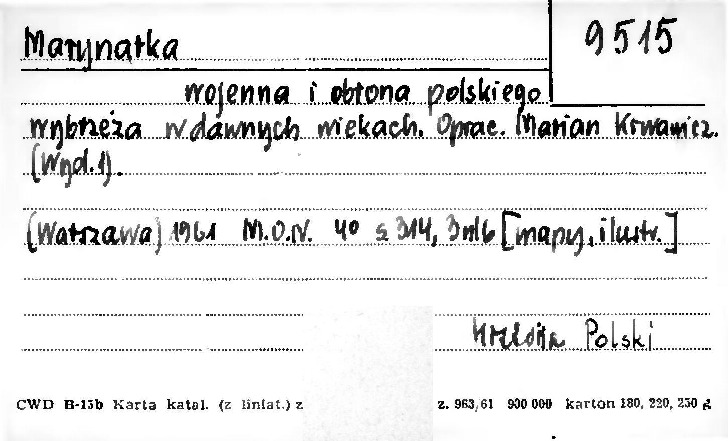 Marynarka
9515
wojenna i obrona polskiego
wybrzeża w dawnych wiekach. Oprac. Marian Krwawicz.
(Wyd. 1).
(Warszawa) 1961 M.O.N. 4º s 314, 3 nlb [mapy, ilustr.]
Polski
CWD B-15b Karta katal. (z liniat.) z
z. 963/61 900 000 karton 180, 220, 250 g